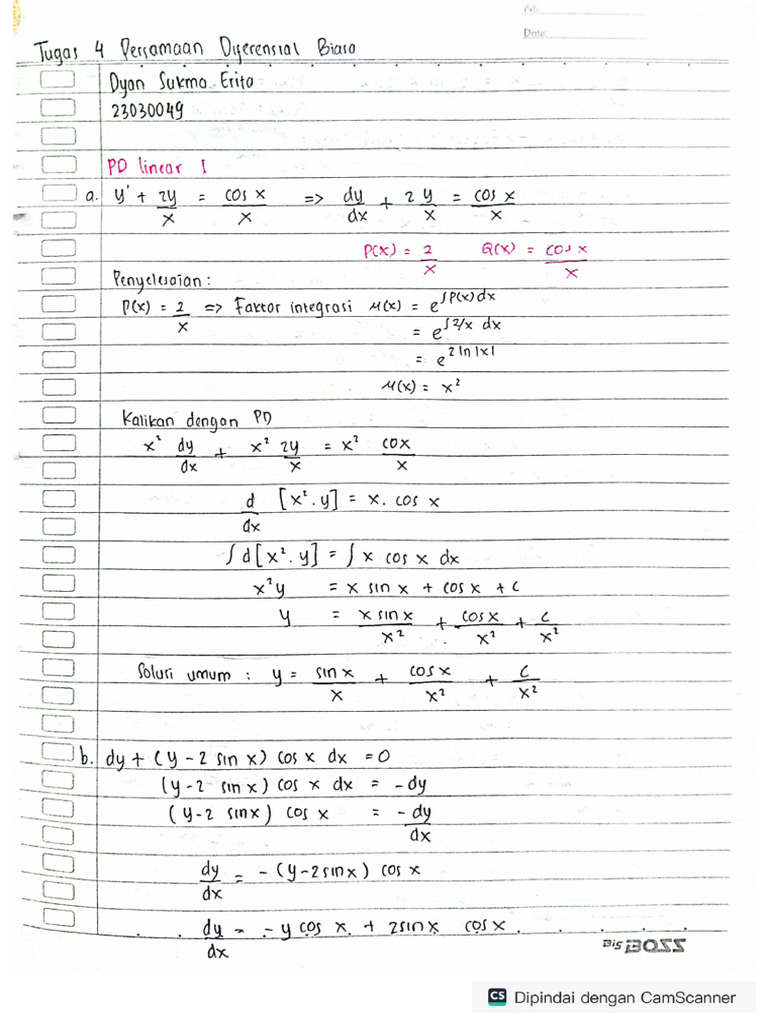 No.
Date:
Tugas 4 Persamaan Diferensial Biasa
Dyan Sukma Erita
23030049
PD linear 1
a. y' + 2y/x = cos x/x => dy/dx + 2 y/x = cos x/x
P(x) = 2/x Q(x) = cos x/x
Penyelesaian :
P(x) = 2/x => Faktor integrasi μ(x) = e^∫P(x)dx
= e^∫2/x dx
= e^2 ln|x|
μ(x) = x²
Kalikan dengan PD
x² dy/dx + x² 2y/x = x² cox/x
d/dx [x².y] = x. cos x
∫d[x².y] = ∫ x cos x dx
x²y = x sin x + cos x + C
y = x sin x/x² + cos x/x² + C/x²
Solusi umum : y = sin x/x + cos x/x² + C/x²
b. dy + (y - 2 sin x) cos x dx = 0
(y - 2 sin x) cos x dx = - dy
(y - 2 sin x) cos x = - dy/dx
dy/dx = - (y - 2 sin x) cos x
dy/dx = - y cos x + 2 sin x cos x
Big BOSS
CS Dipindai dengan CamScanner